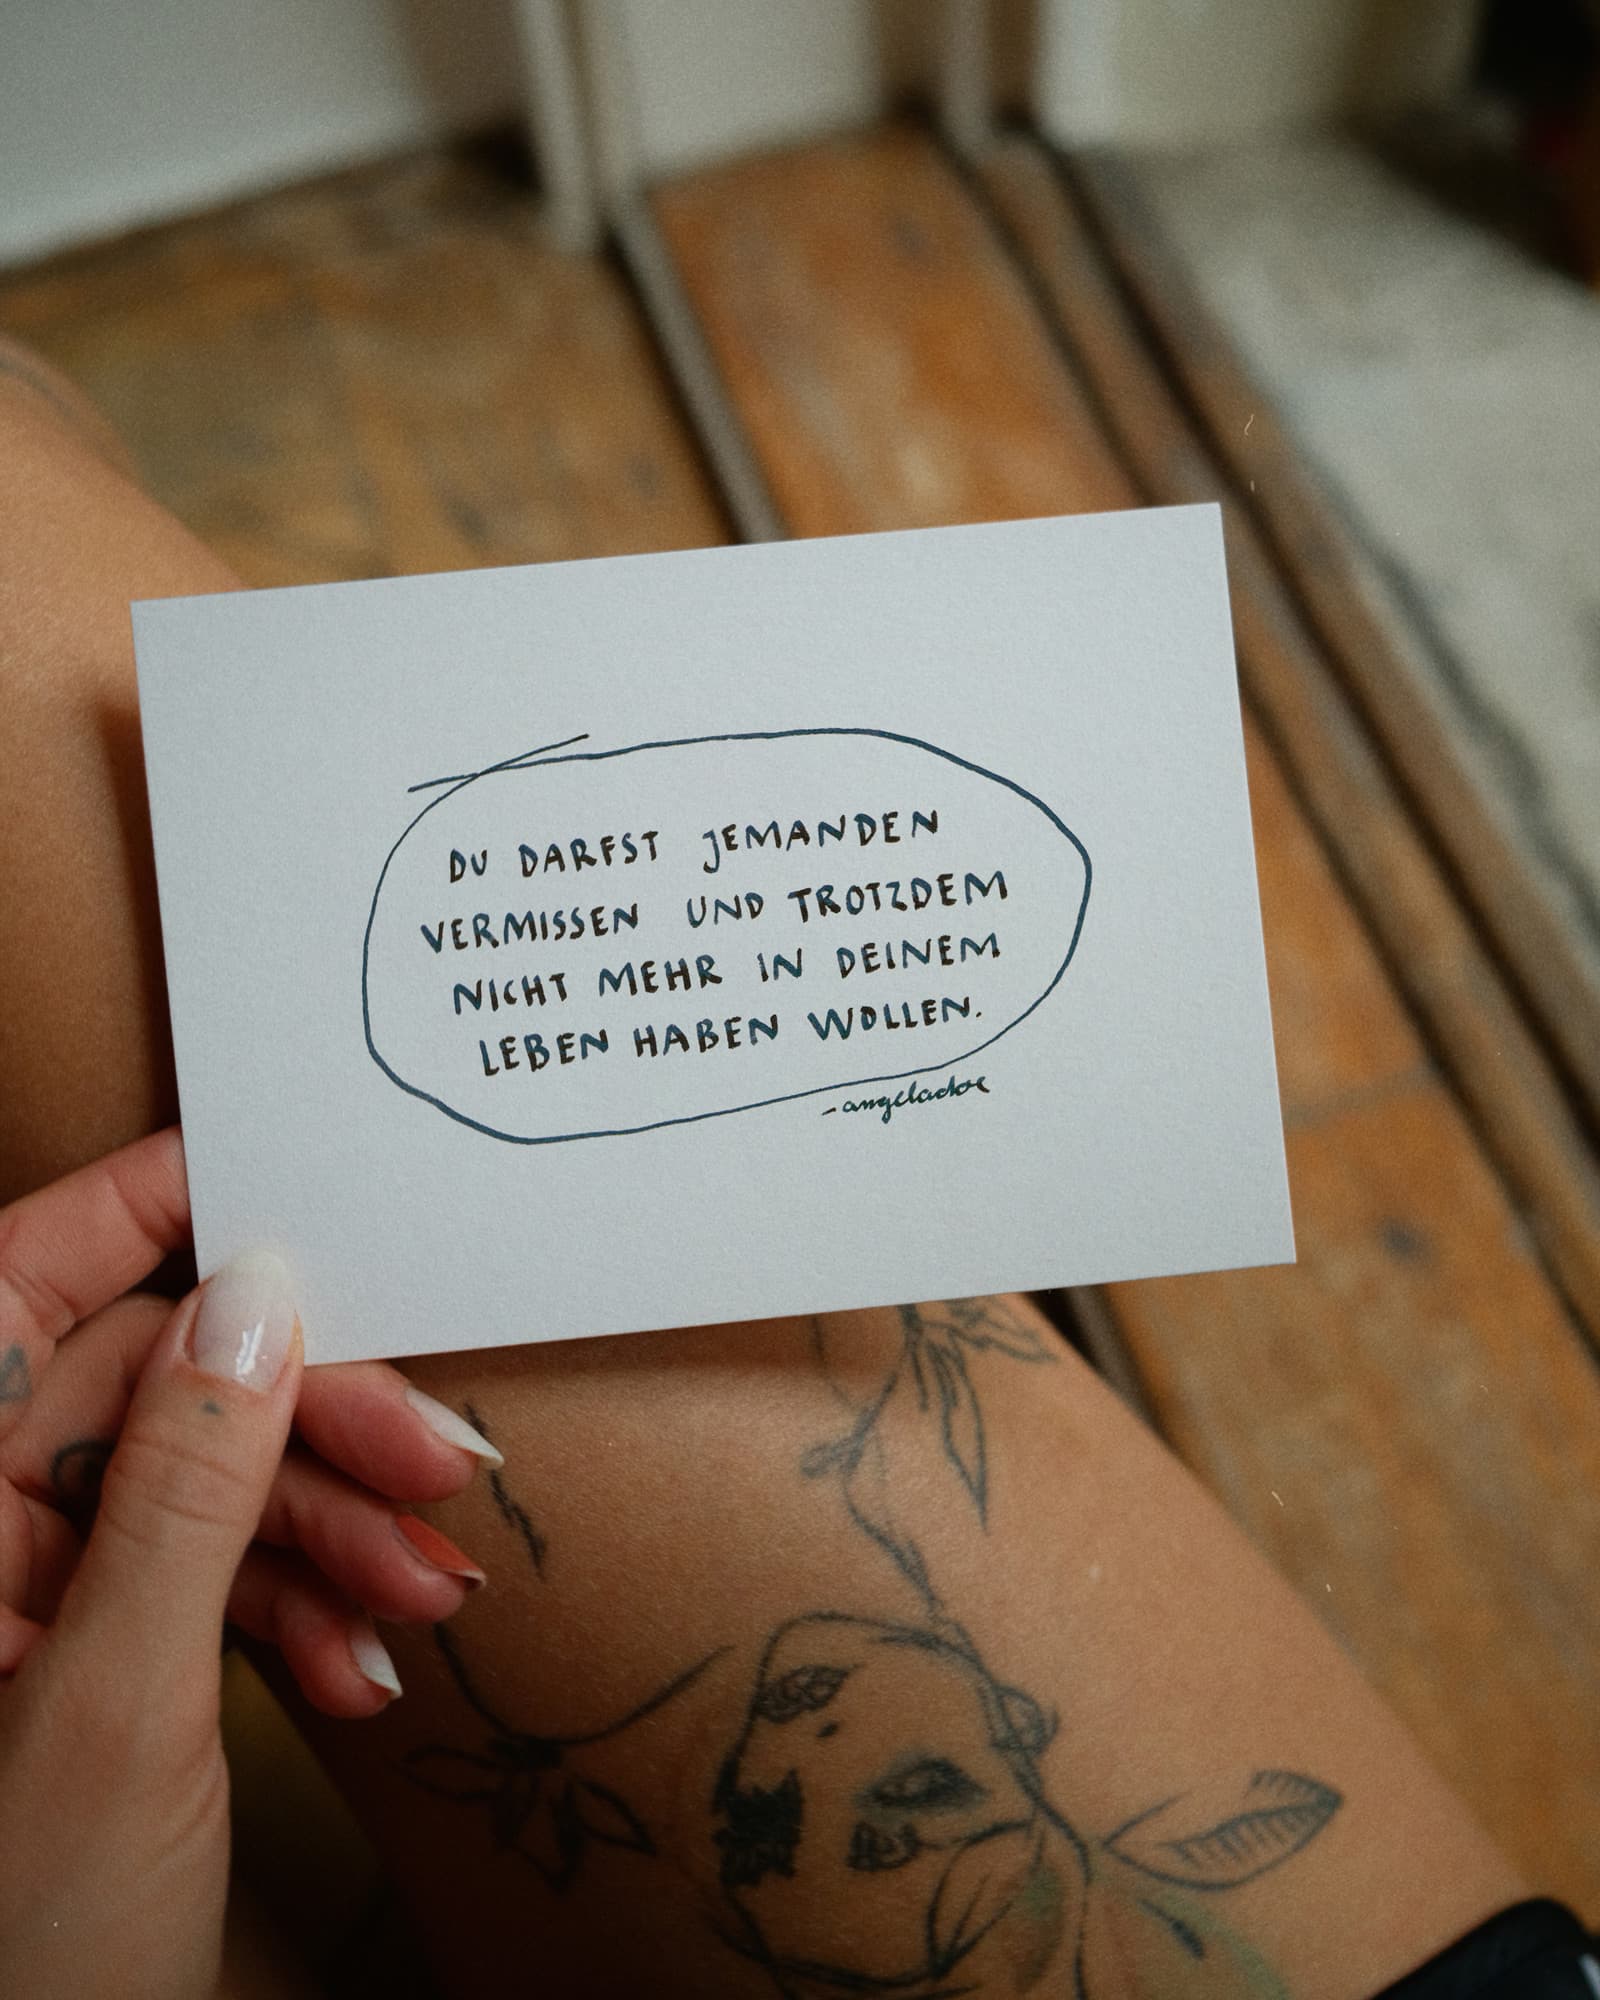 DU DARFST JEMANDEN
VERMISSEN UND TROTZDEM
NICHT MEHR IN DEINEM
LEBEN HABEN WOLLEN.
- angeladoe